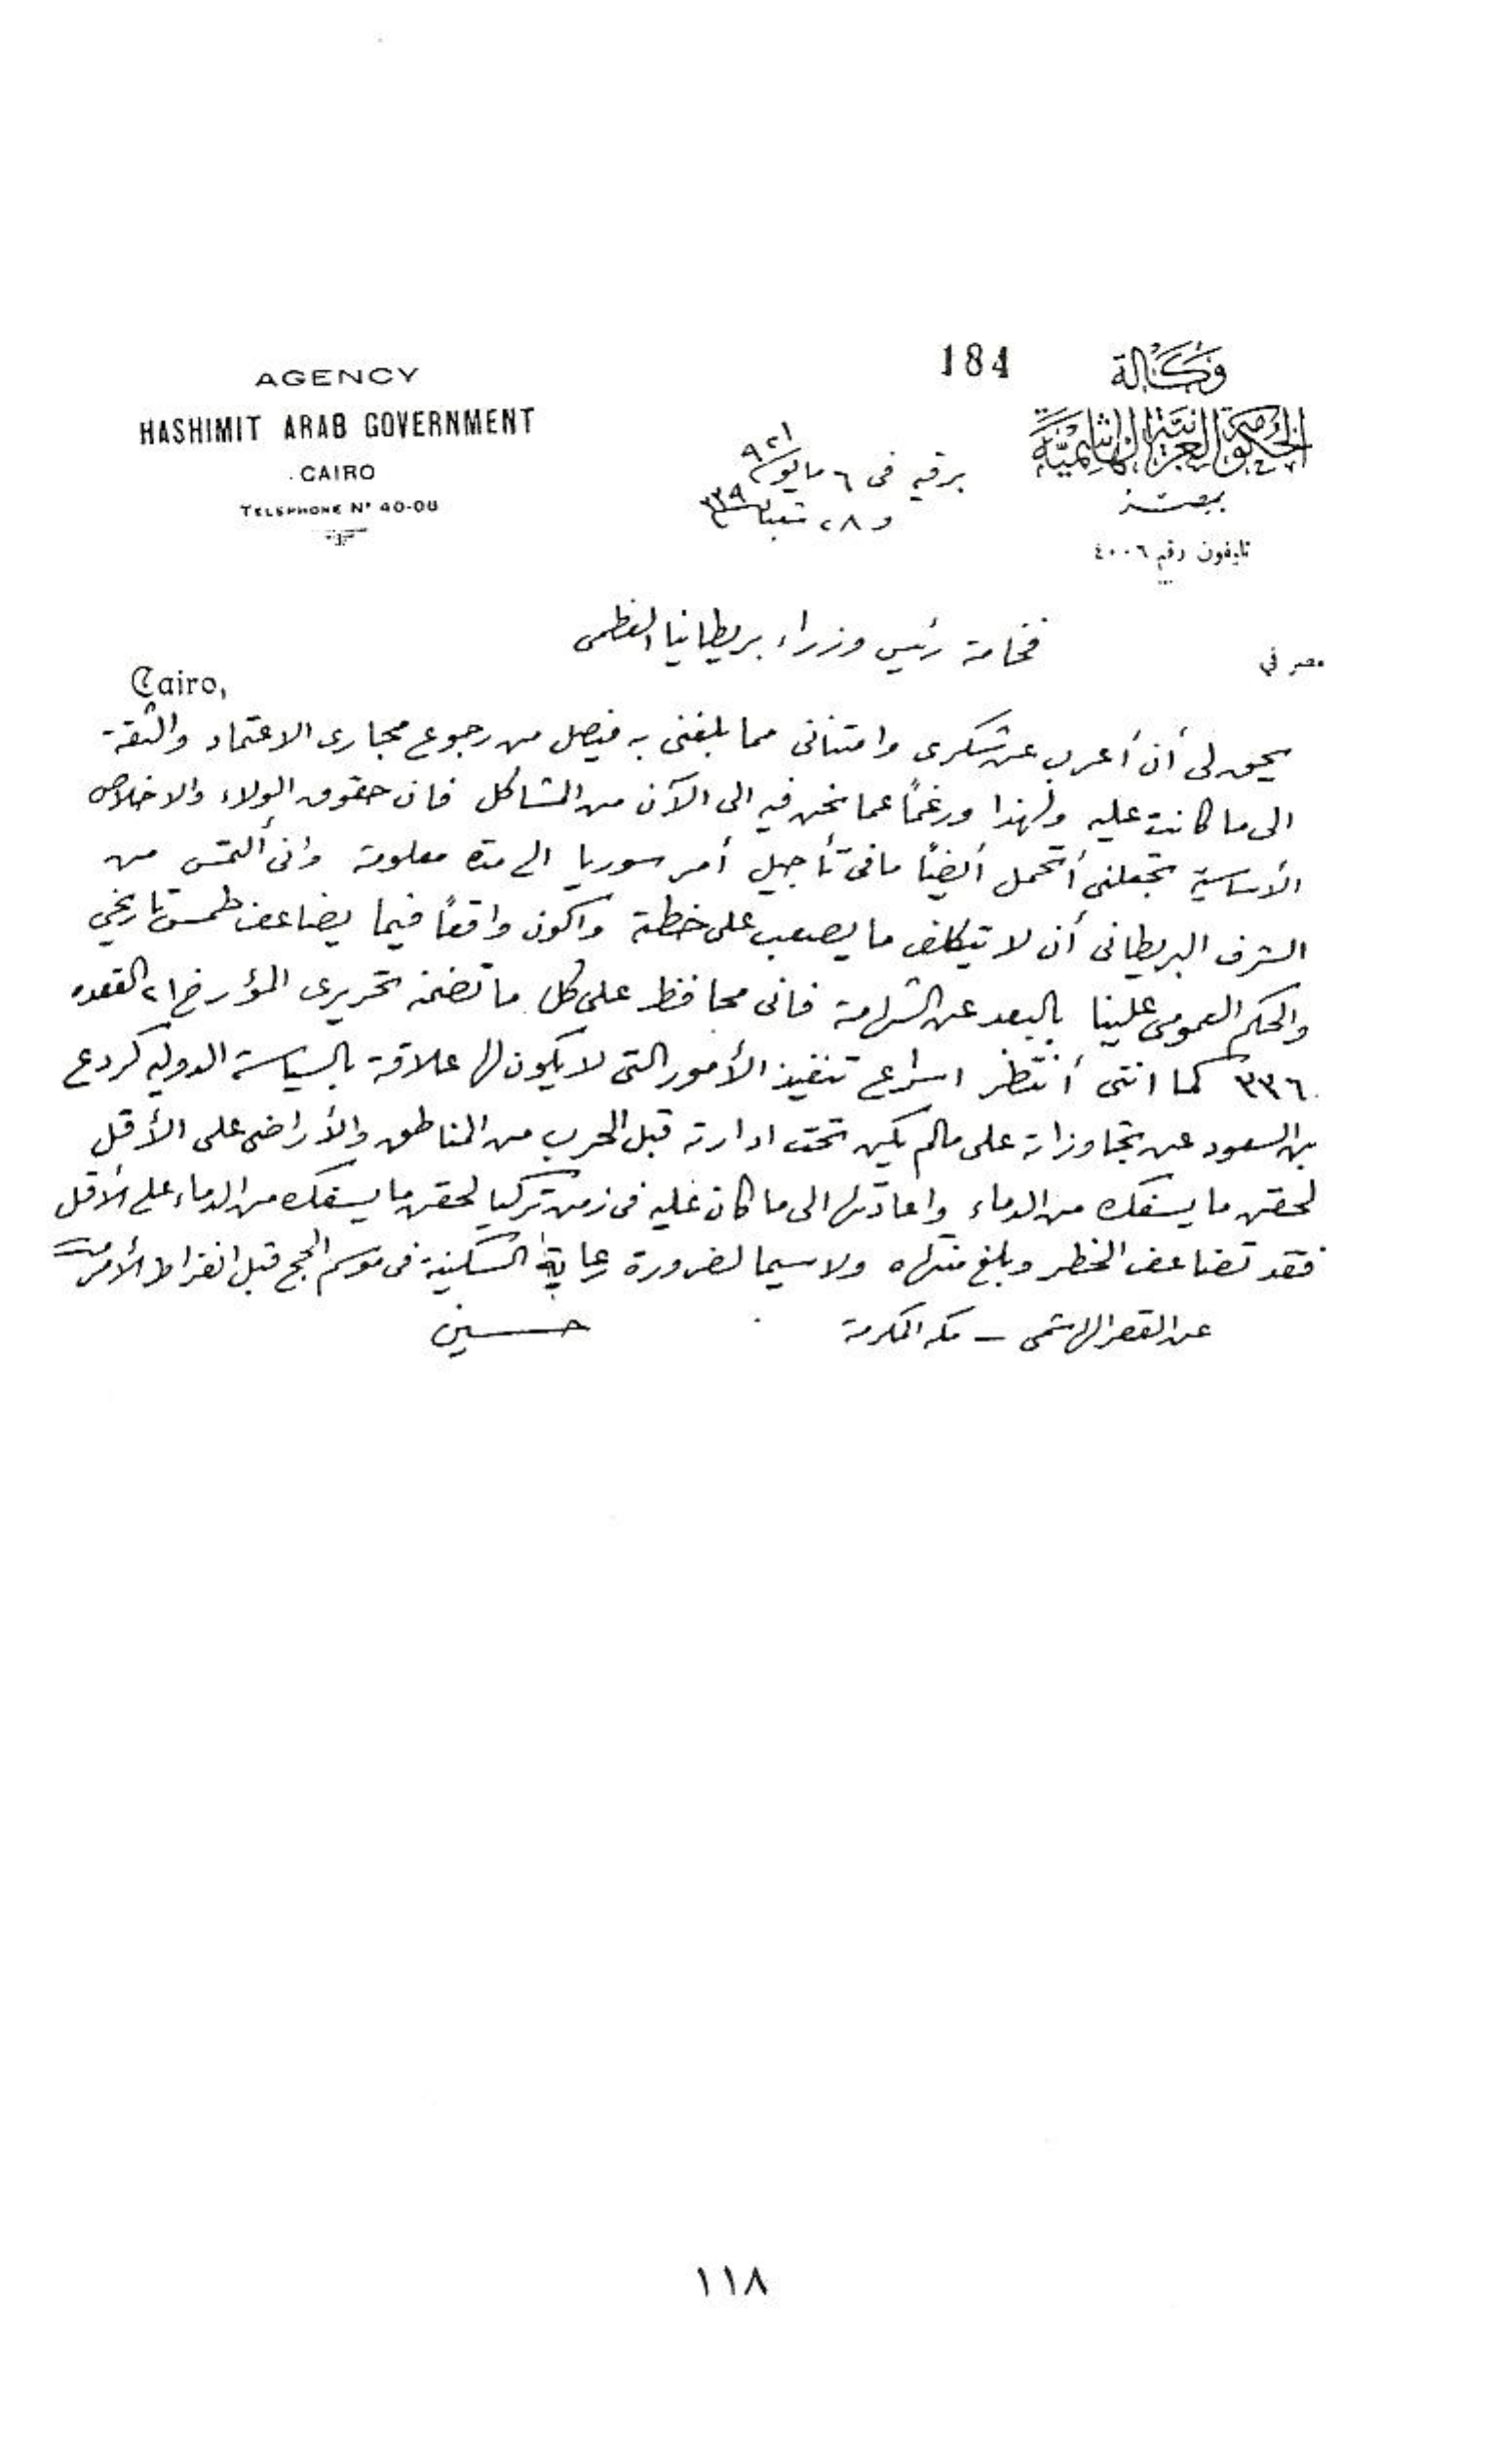 AGENCY
HASHIMIT ARAB GOVERNMENT
CAIRO
TELEPHONE Nº 40-06
184
وكالة
الحكومة العربية الهاشمية
بمصر
تليفون رقم ٤٠٠٦
برقيه فى ٦ مايو ٩٢١
و ٢٨ شعبان ٣٣٩
مصر في
Cairo,
فخامة رئيس وزراء بريطانيا العظمى
يحق لى أن أعرب عن شكرى وامتنانى مما بلغنى به فيصل من رجوع مجارى الاعتماد والثقة
الى ما كانت عليه ولهذا ورغماً عما نحن فيه الى الآن من المشاكل فان حقوق الولاء والاخلاص
الأساسية تجعلنى أتحمل أيضاً ما فى تأجيل أمر سوريا الى مدة معلومة وانى ألتمس من
الشرف البريطانى أن لا تيكلف ما يصعب على خطته واكون واقعاً فيما يضاعف طمس تاريخي
والحكم العمومى علينا بالبعد عن الشهامة فانى محافظ على كل ما تضمنه تحريرى المؤرخ ٢١ القعده
٣٣٦ كما اننى أنتظر اسراع تنفيذ الأمور التى لا يكون لها علاقة بالسياسة الدوليه كردع
بن السعود عن تجاوزاته على مالم يكن تحت ادارته قبل الحرب من المناطق والأراضى على الأقل
لحقن ما يسفك من الدماء واعادتها الى ما كان عليه فى زمن تركيا لحقن ما يسفك من الدماء على الأقل
فقد تضاعف الخطر وبلغ منتهاه ولاسيما لضرورة رعاية السكينة فى موسم الحج قبل انفراط الأمر
عن القصر الهاشمى – مكه المكرمة
حسين
١١٨